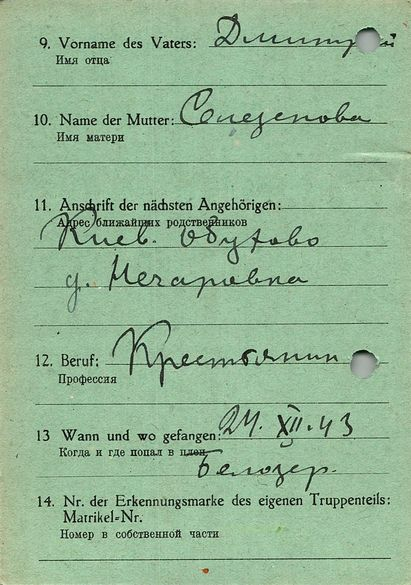 9. Vorname des Vaters: Дмитрий
Имя отца
10. Name der Mutter: Слезенова
Имя матери
11. Anschrift der nächsten Angehörigen:
Адрес ближайших родственников
Киев. Обухово
д. Нечаровка
12. Beruf: Крестьянин
Профессия
13 Wann und wo gefangen: 24. XII. 43
Когда и где попал в плен
Белозер.
14. Nr. der Erkennungsmarke des eigenen Truppenteils:
Matrikel-Nr.
Номер в собственной части